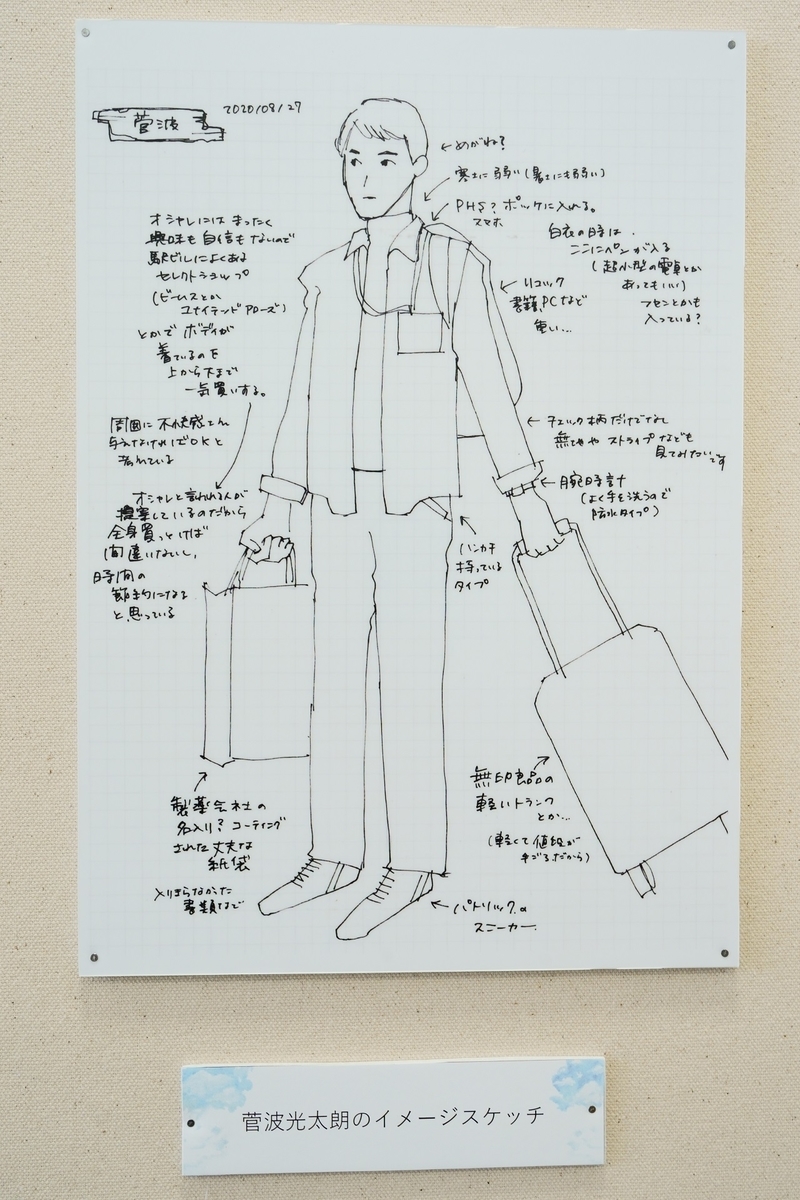 菅波
2020/08/27
←めがね?
寒さに弱い(暑さにも弱い)
PHS?ポッケに入れる。
スマホ
白衣の時は、
ここにペンが入る
(超小型の電卓とか
あってもいい)
フセンとかも
入っている?
リュック
書籍、PCなど
重い…
オシャレには まったく
興味も自信もないので
駅ビルによくある
セレクトショップ
(ビームスとか
ユナイテッドアローズ)
とかで ボディが
着ているのを
上から下まで
一気買いする。
周囲に不快感さえ
与えなければOKと
考えている
オシャレと言われる人が
提案しているのだから
全身買っとけば
間違いないし、
時間の
節約になる
と思っている
←チェック柄だけでなく
無地や ストライプなども
見てみたいです
←腕時計
(よく手を洗うので
防水タイプ)
ハンカチ
持っている
タイプ
製薬会社の
名入り?コーティング
された丈夫な
紙袋
入りきらなかった
書類など
無印良品の
軽いトランク
とか…
(軽くて値段が
手ごろだから)
←パトリックの
スニーカー
菅波光太朗のイメージスケッチ